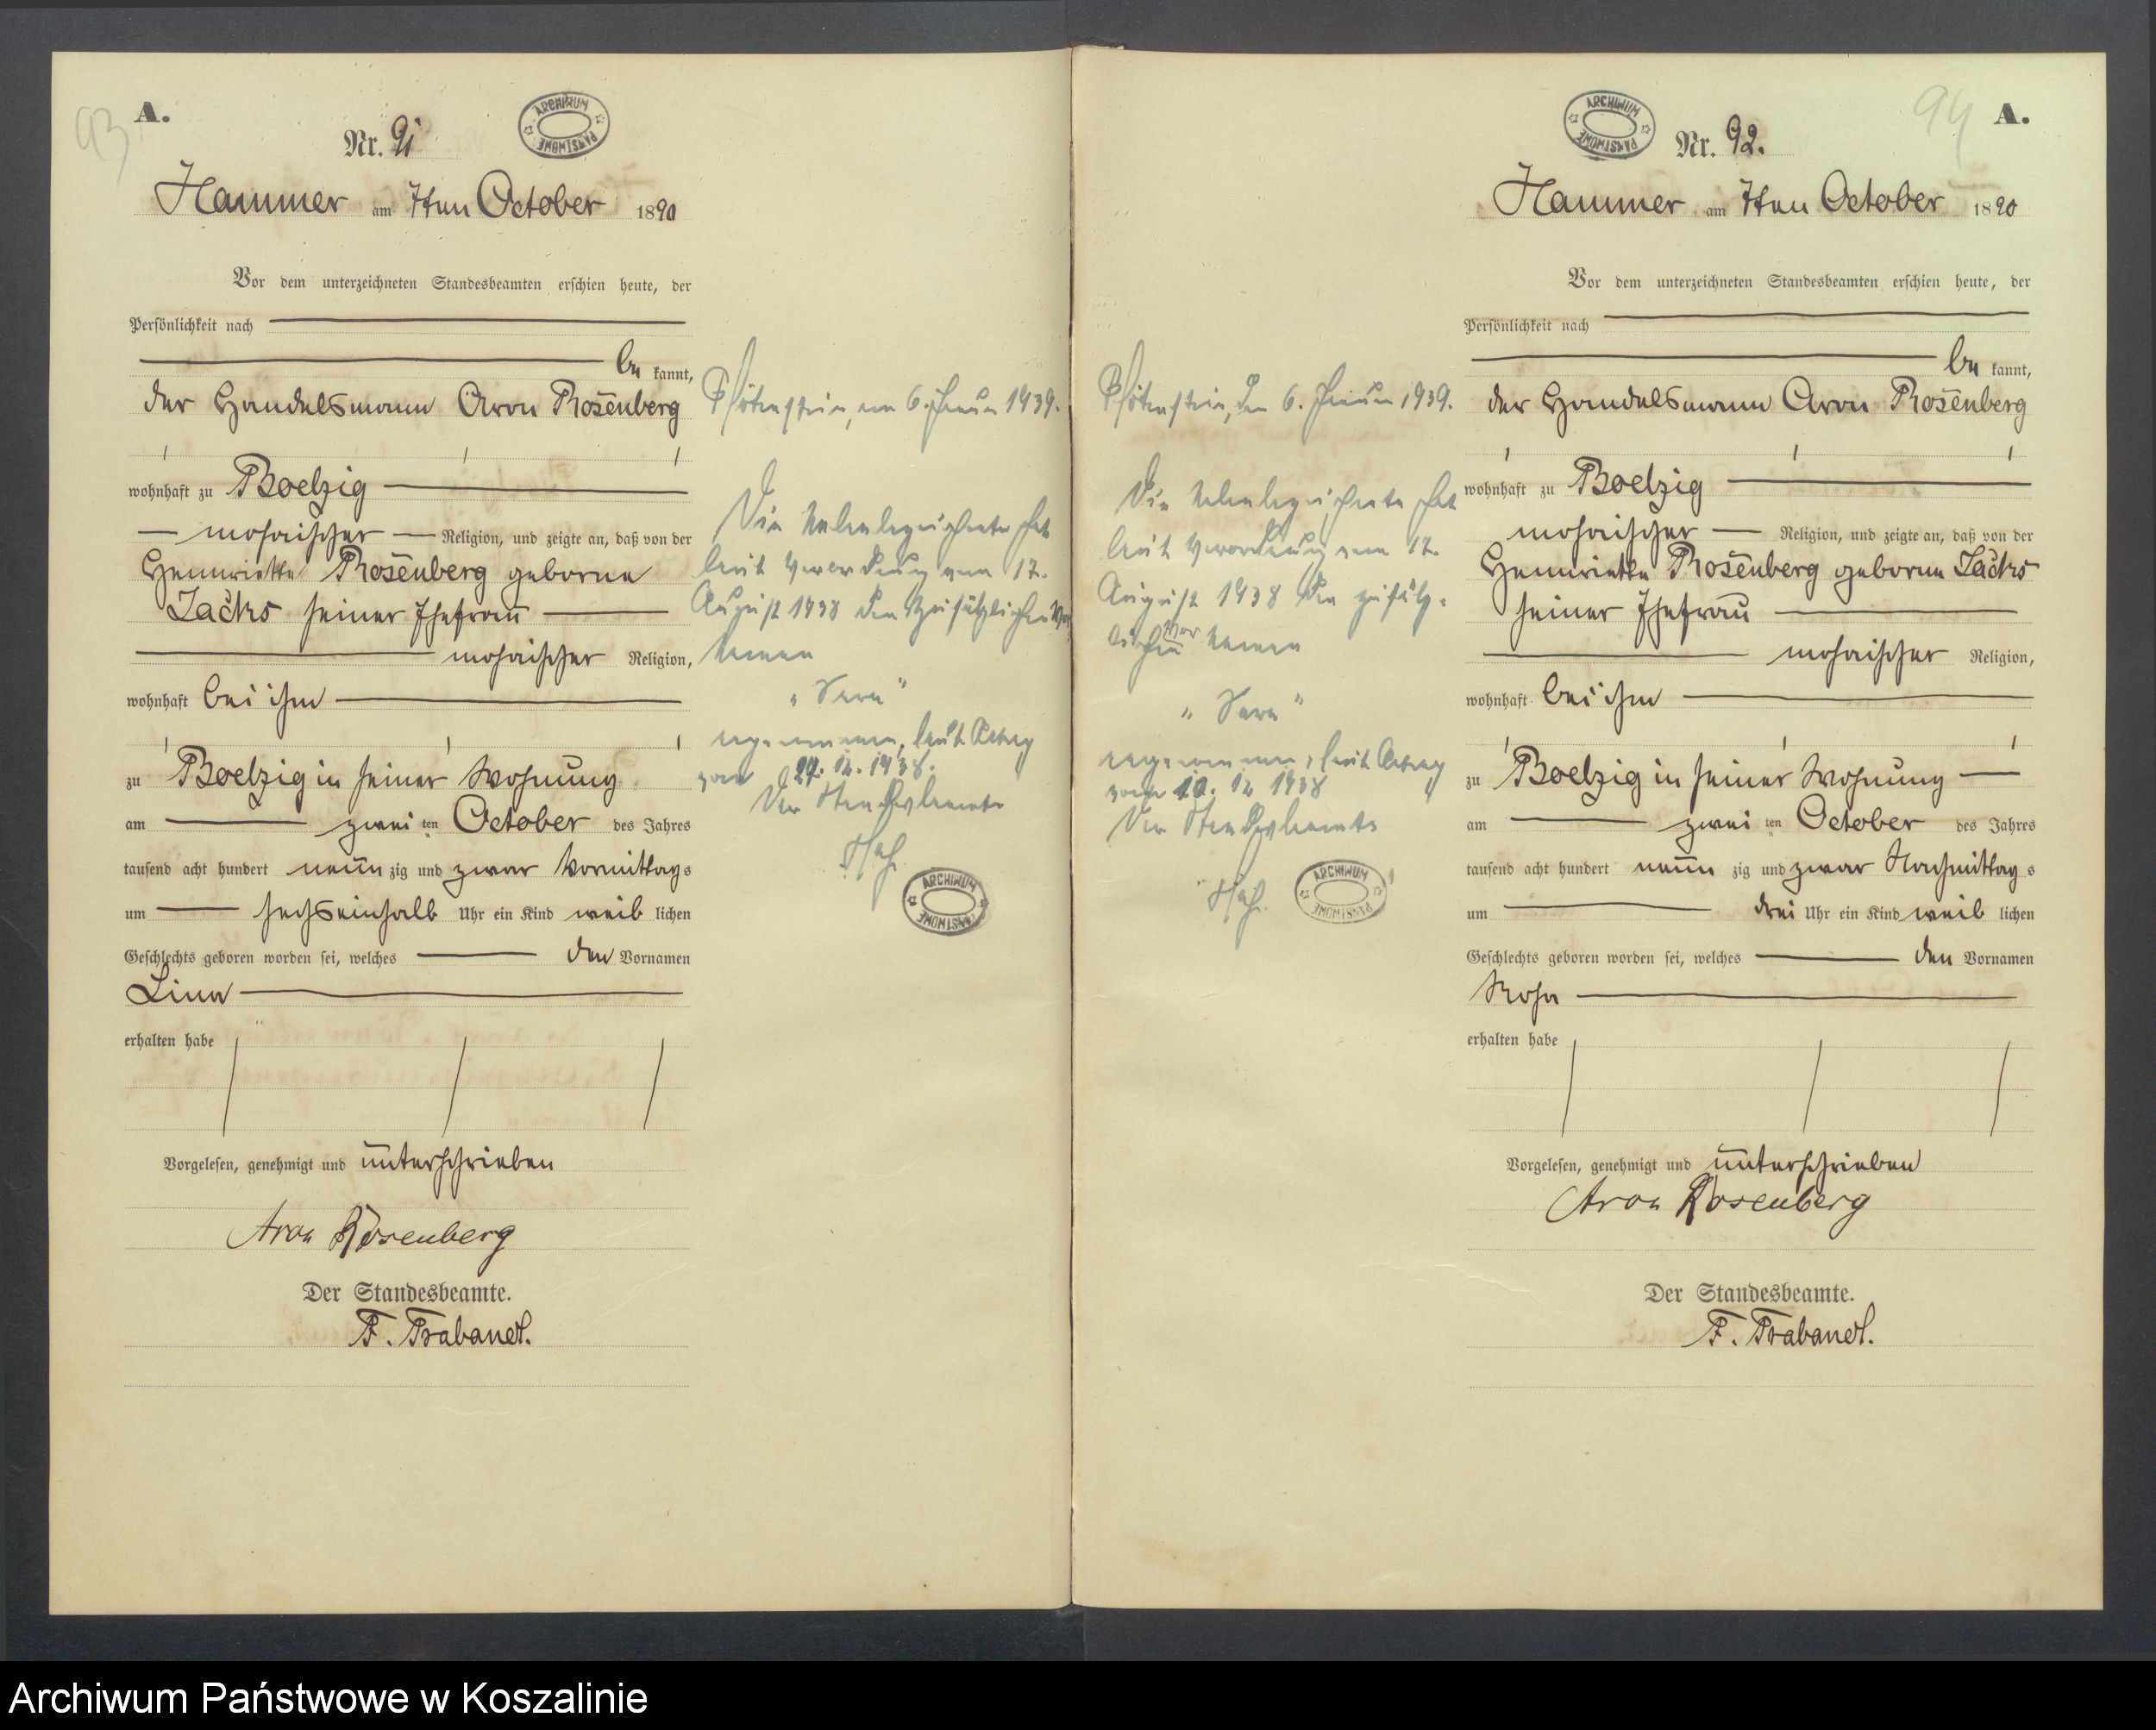 93
A.
ARCHIWUM PAŃSTWOWE
Nr. 91
Hammer am 7ten October 1890
Vor dem unterzeichneten Standesbeamten erschien heute, der
Persönlichkeit nach
be kannt,
der Handelsmann Aron Rosenberg
wohnhaft zu Boelzig
mosaischer Religion, und zeigte an, daß von der
Henriette Rosenberg geborne
Sachs seiner Ehefrau
mosaischer Religion,
wohnhaft bei ihm
zu Boelzig in seiner Wohnung
am zwei ten October des Jahres
tausend acht hundert neun zig und zwar Vormittags
um sechseinhalb Uhr ein Kind weib lichen
Geschlechts geboren worden sei, welches den Vornamen
Lina
erhalten habe
Vorgelesen, genehmigt und unterschrieben
Aron Rosenberg
Der Standesbeamte.
F. Trabandt.
am 6. Januar 1939.
Die Nebenbezeichnete hat
laut Verordnung vom 17.
August 1938 den zusätzlichen Vor
namen
„Sara"
angenommen, laut Antrag
vom 29. 12. 1938.
Der Standesbeamte
ARCHIWUM PAŃSTWOWE
94
A.
ARCHIWUM PAŃSTWOWE
Nr. 92.
Hammer am 7ten October 1890
Vor dem unterzeichneten Standesbeamten erschien heute, der
Persönlichkeit nach
be kannt,
der Handelsmann Aron Rosenberg
wohnhaft zu Boelzig
mosaischer Religion, und zeigte an, daß von der
Henriette Rosenberg geborne Sachs
seiner Ehefrau
mosaischer Religion,
wohnhaft bei ihm
zu Boelzig in seiner Wohnung
am zwei ten October des Jahres
tausend acht hundert neun zig und zwar Nachmittag s
um drei Uhr ein Kind weib lichen
Geschlechts geboren worden sei, welches den Vornamen
Rosa
erhalten habe
Vorgelesen, genehmigt und unterschrieben
Aron Rosenberg
Der Standesbeamte.
F. Trabandt.
den 6. Januar 1939.
Die Nebenbezeichnete hat
laut Verordnung vom 17.
August 1938 den zusätz-
lichen Vor namen
„Sara"
angenommen, laut Antrag
vom 12. 1938
Der Standesbeamte
ARCHIWUM PAŃSTWOWE
Archiwum Państwowe w Koszalinie